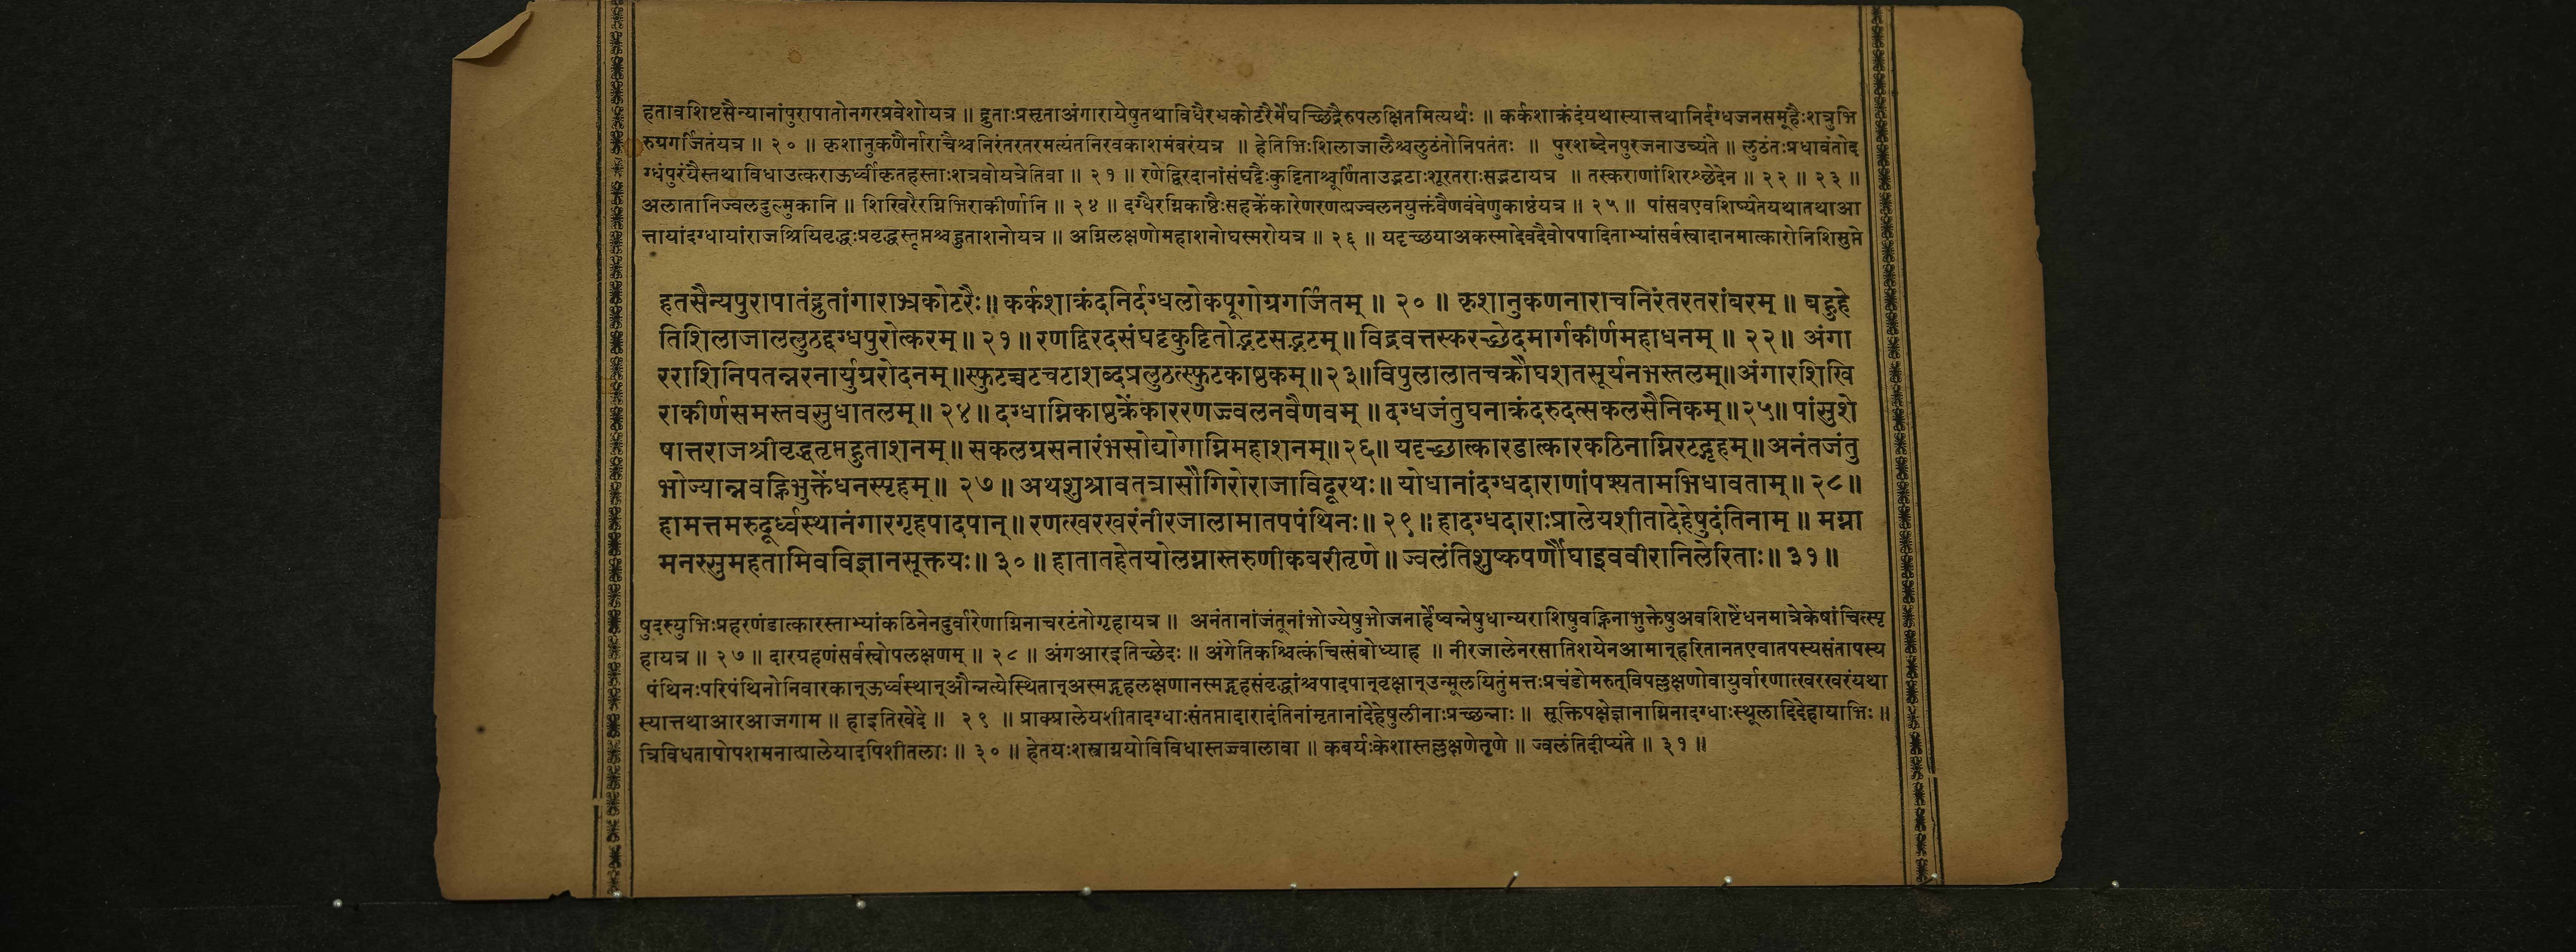 हतावशिष्टसैन्यानांपुरापातोनगरप्रवेशोयत्र ॥ द्रुताःप्रसृताअंगारायेषुतथाविधैरभ्रकोटरैर्मेघच्छिद्रैरुपलक्षितमित्यर्थः ॥ कर्कशाक्रंदंयथास्यात्तथानिर्दग्धजनसमूहैःशत्रुभि
रुग्रगर्जितंयत्र ॥ २० ॥ कृशानुकणैर्नाराचैश्चनिरंतरतरमत्यंतनिरवकाशमंबरंयत्र ॥ हेतिभिःशिलाजालैश्चलुठंतोनिपतंतः ॥ पुरशब्देनपुरजनाउच्यंते ॥ लुठंतःप्रधावंतोद
ग्धंपुरंयैस्तथाविधाउत्कराऊर्ध्वीकृतहस्ताःशत्रवोयत्रेतिवा ॥ २१ ॥ रणेद्विरदानांसंघट्टैःकुट्टिताश्चूर्णिताउद्भटाःशूरतराःसद्भटायत्र ॥ तस्कराणांशिरश्छेदेन ॥ २२ ॥ २३ ॥
अलातानिज्वलदुल्मुकानि ॥ शिखिरैरग्निभिराकीर्णानि ॥ २४ ॥ दग्धैरग्निकाष्ठैःसहक्रेंकारेणरणत्प्रज्वलनयुक्तंवैणवंवेणुकाष्ठंयत्र ॥ २५ ॥ पांसवएवशिष्यंतेयथातथाआ
त्तायांदग्धायांराजश्रियिवृद्धःप्रवृद्धस्तृप्तश्चहुताशनोयत्र ॥ अग्निलक्षणोमहाशनोघस्मरोयत्र ॥ २६ ॥ यदृच्छयाअकस्मादेवदैवोपपादिताभ्यांसर्वस्वादानमात्कारोनिशिसुप्ते
हतसैन्यपुरापातंद्रुतांगाराभ्रकोटरैः॥ कर्कशाक्रंदनिर्दग्धलोकपूगोग्रगर्जितम् ॥ २० ॥ कृशानुकणनाराचनिरंतरतरांबरम् ॥ बहुहे
तिशिलाजाललुठद्दग्धपुरोत्करम् ॥ २१ ॥ रणद्विरदसंघट्टकुट्टितोद्भटसद्भटम् ॥ विद्रवत्तस्करच्छेदमार्गकीर्णमहाधनम् ॥ २२ ॥ अंगा
रराशिनिपतन्नरनार्युग्ररोदनम् ॥ स्फुटच्चटचटाशब्दप्रलुठत्स्फुटकाष्ठकम् ॥ २३ ॥ विपुलालातचक्रौघशतसूर्यनभस्तलम् ॥ अंगारशिखि
राकीर्णसमस्तवसुधातलम् ॥ २४ ॥ दग्धाग्निकाष्ठक्रेंकाररणज्ज्वलनवैणवम् ॥ दग्धजंतुघनाक्रंदरुदत्सकलसैनिकम् ॥ २५ ॥ पांसुशे
षात्तराजश्रीवृद्धतृप्तहुताशनम् ॥ सकलग्रसनारंभसोद्योगाग्निमहाशनम् ॥ २६ ॥ यदृच्छात्कारडात्कारकठिनाग्निरटद्गृहम् ॥ अनंतजंतु
भोज्यान्नवह्निभुक्तेंधनस्पृहम् ॥ २७ ॥ अथशुश्रावतत्रासौगिरोराजाविदूरथः ॥ योधानांदग्धदाराणांपश्यतामभिधावताम् ॥ २८ ॥
हामत्तमरुदूर्ध्वस्थानंगारगृहपादपान् ॥ रणत्खरखरंनीरजालामातपपंथिनः ॥ २९ ॥ हादग्धदाराःप्रालेयशीतादेहेषुदंतिनाम् ॥ मग्ना
मनस्सुमहतामिवविज्ञानसूक्तयः ॥ ३० ॥ हातातहेतयोलग्नास्तरुणीकबरीतृणे ॥ ज्वलंतिशुष्कपर्णौघाइववीरानिलेरिताः ॥ ३१ ॥
षुदस्युभिःप्रहरणंडात्कारस्ताभ्यांकठिनेनदुर्वारेणाग्निनाचरटंतोगृहायत्र ॥ अनंतानांजंतूनांभोज्येषुभोजनार्हेष्वन्नेषुधान्यराशिषुवह्निनाभुक्तेषुअवशिष्टेंधनमात्रेकेषांचित्स्पृ
हायत्र ॥ २७ ॥ दारग्रहणंसर्वस्वोपलक्षणम् ॥ २८ ॥ अंगआरइतिच्छेदः ॥ अंगेतिकश्चित्कंचित्संबोध्याह ॥ नीरजालेनरसातिशयेनआमान्हरितानतएवातपस्यसंतापस्य
पंथिनःपरिपंथिनोनिवारकान्ऊर्ध्वस्थान्औन्नत्येस्थितान्अस्मद्गृहलक्षणानस्मद्गृहसंवृद्धांश्चपादपान्वृक्षान्उन्मूलयितुंमत्तःप्रचंडोमरुत्विपल्लक्षणोवायुर्वारणात्खरखरंयथा
स्यात्तथाआरआजगाम ॥ हाइतिखेदे ॥ २९ ॥ प्राक्प्रालेयशीतादग्धाःसंतप्तादारादंतिनांमृतानांदेहेषुलीनाःप्रच्छन्नाः ॥ सूक्तिपक्षेज्ञानाग्निनादग्धाःस्थूलादिदेहायाभिः ॥
त्रिविधतापोपशमनात्प्रालेयादपिशीतलाः ॥ ३० ॥ हेतयःशस्त्राग्नयोविविधास्तज्ज्वालावा ॥ कबर्यःकेशास्तल्लक्षणेतृणे ॥ ज्वलंतिदीप्यंते ॥ ३१ ॥